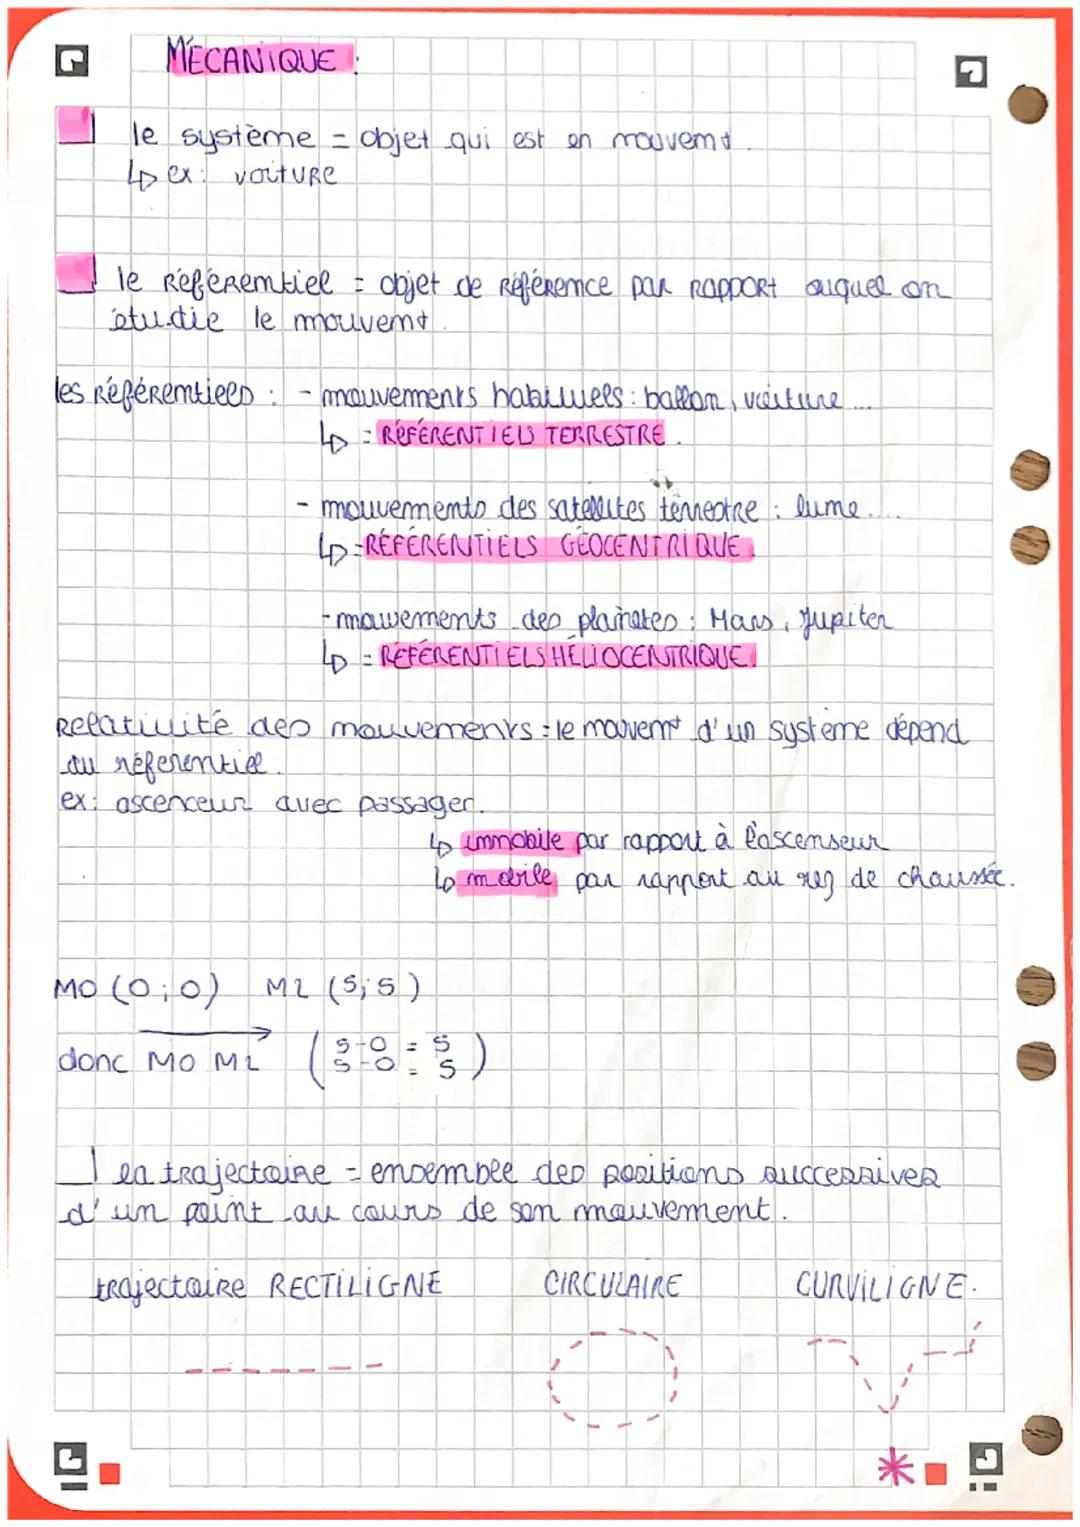 MÉCANIQUE :
le système = objet qui est en mouvemt.
↳ ex : voiture
le Référentiel = objet de Référence par RAPPORT auquel on
étudie le mouvemt.
les Référentiels : - mouvements habituels : ballon, voiture ...
↳ = RÉFÉRENTIELS TERRESTRE.
- mouvements des satellites terrestre : lune ....
↳ = RÉFÉRENTIELS GÉOCENTRIQUE.
- mouvements des planètes : Mars, Jupiter
↳ = RÉFÉRENTIELS HÉLIOCENTRIQUE.
Relativité des mouvements : le mouvemt d'un système dépend
du réferentiel.
ex : ascenceur avec passager.
↳ immobile par rapport à l'ascenseur
↳ mobile par rapport au rez de chaussée.
M0 (0 ; 0) M2 (5 ; 5)
donc M0 M2 (5-0 = 5
5-0 = 5)
la trajectoire = ensemble des positions successives
d'un point au cours de son mouvement.
trajectoire RECTILIGNE CIRCULAIRE CURVILIGNE.